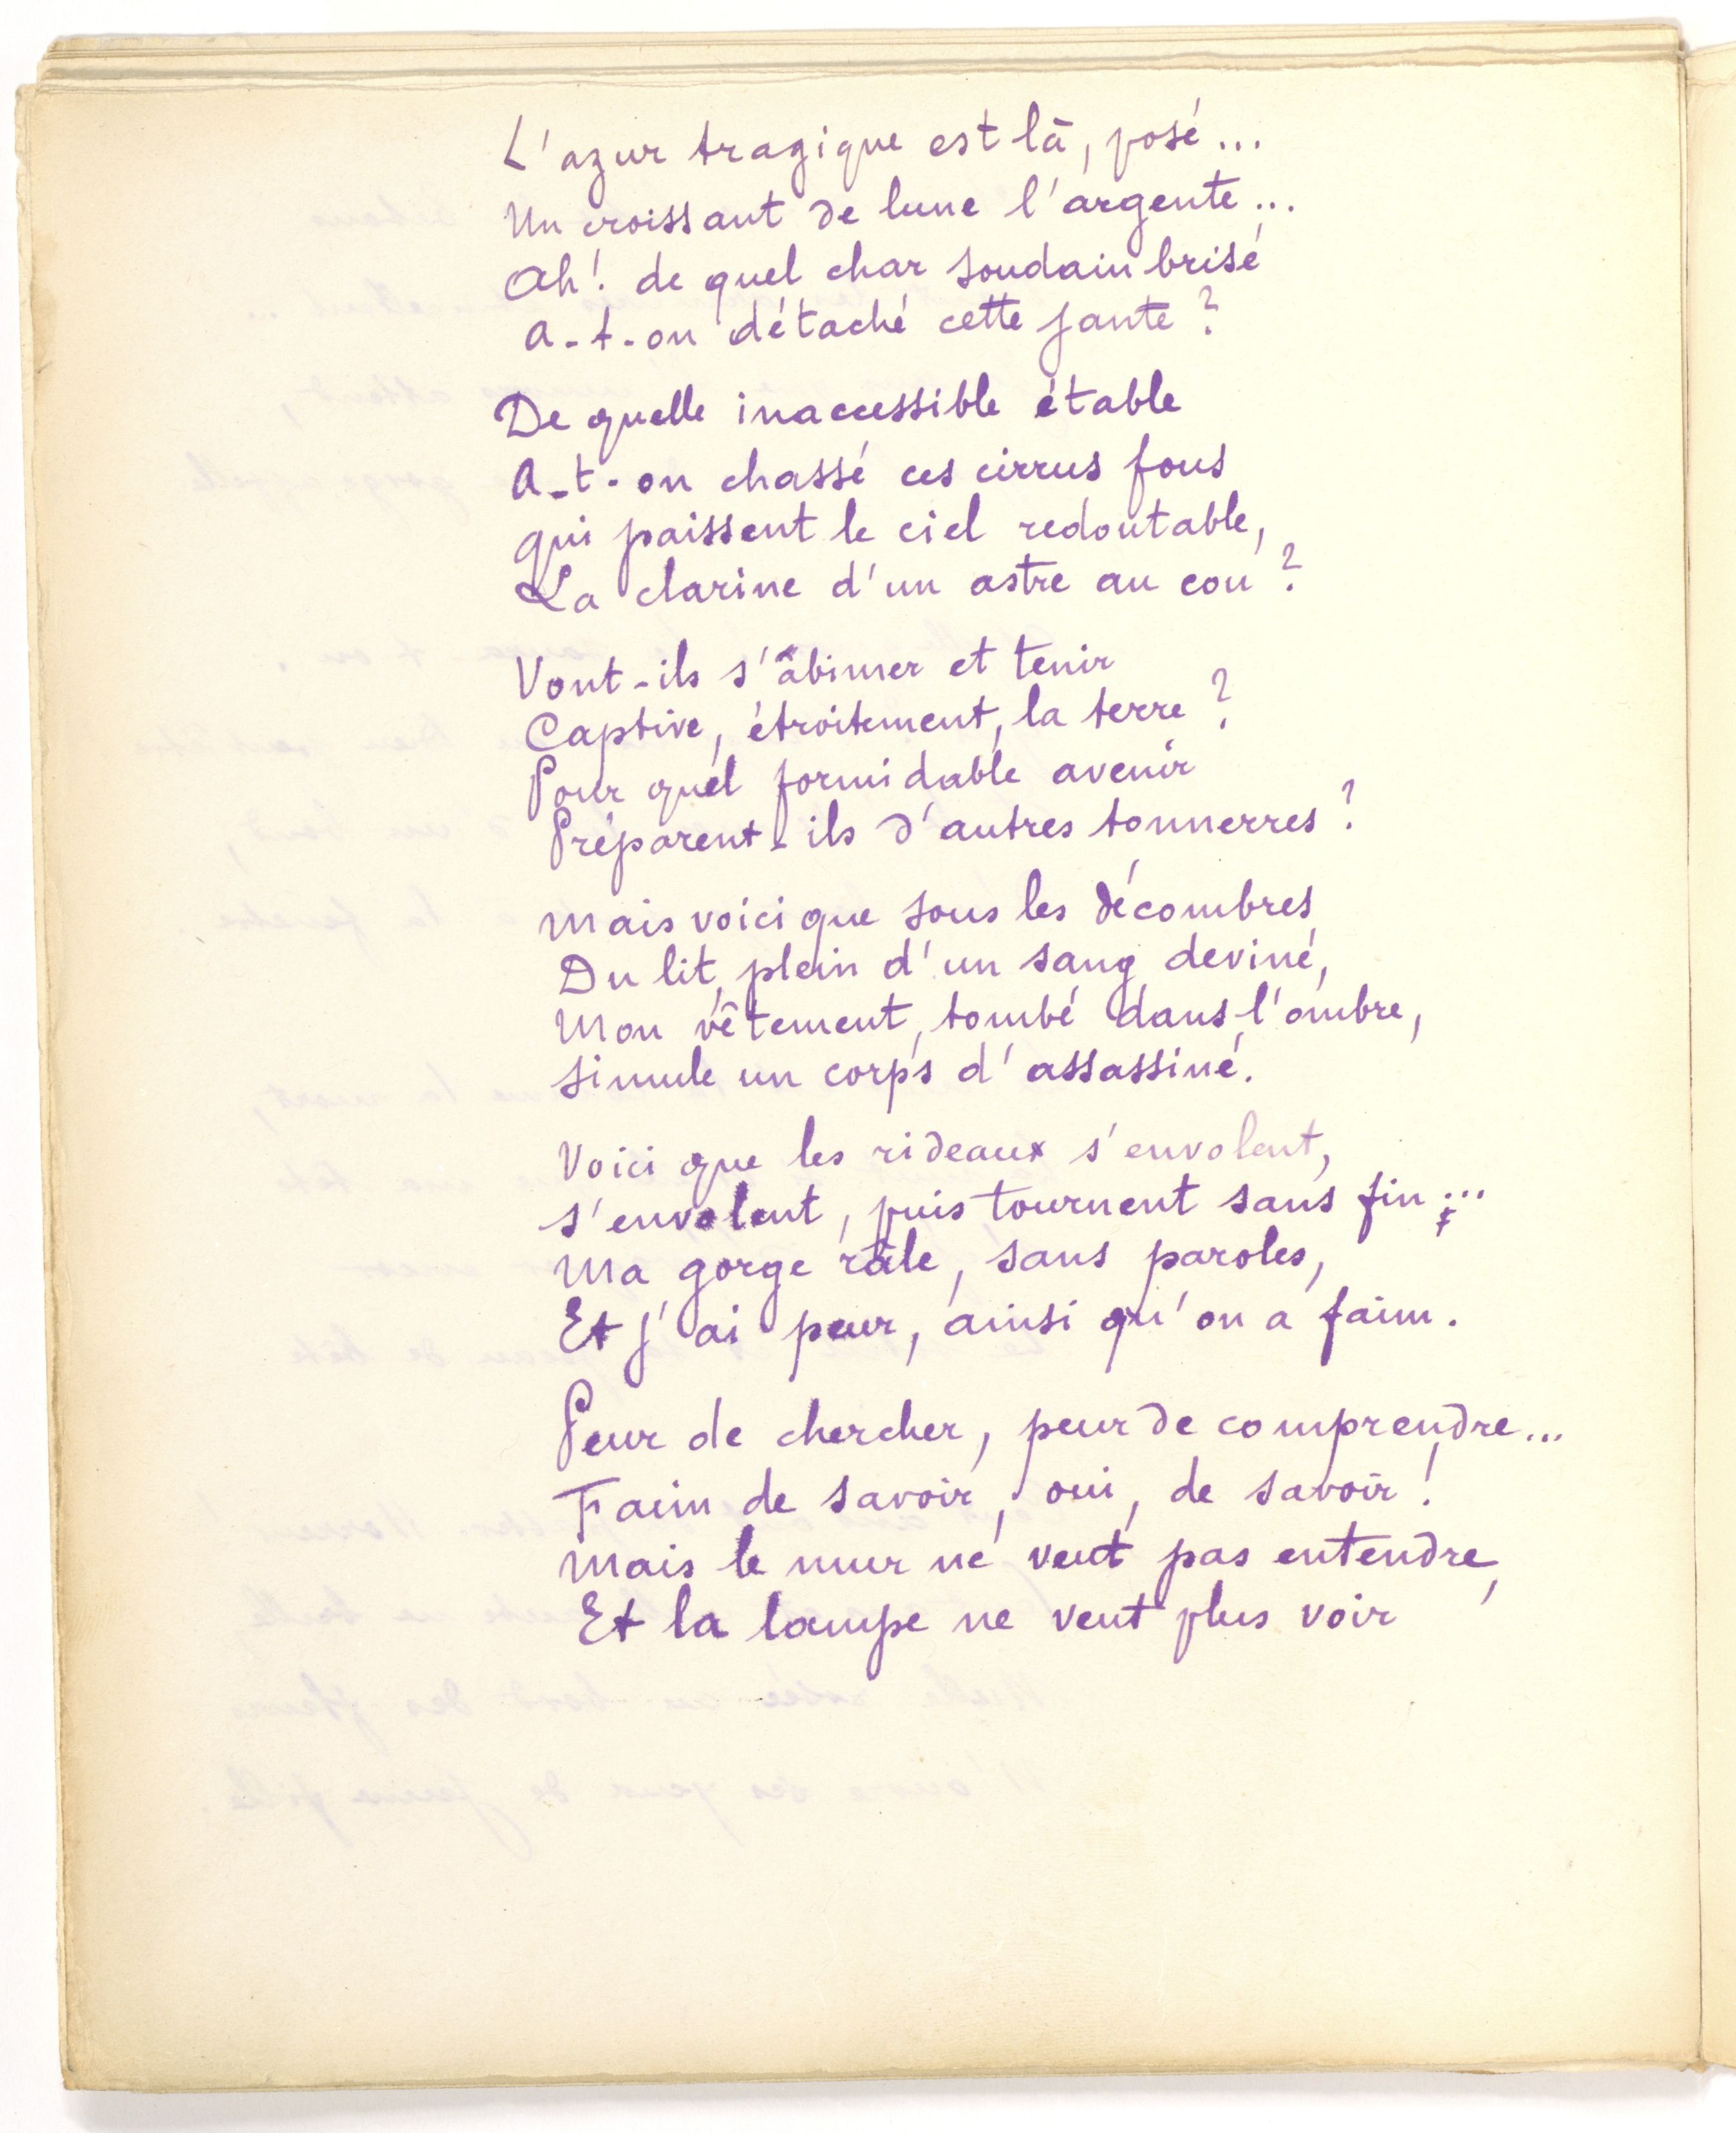 L'azur tragique est là, posé...
Un croissant de lune l'argente...
Ah! de quel char soudain brisé
A-t-on détaché cette jante ?
De quelle inaccessible étable
A-t-on chassé ces cirrus fous
qui paissent le ciel redoutable,
La clarine d'un astre au cou ?
Vont-ils s'âbimer et tenir
Captive, étroitement, la terre ?
Pour quel formidable avenir
Préparent-ils d'autres tonnerres ?
Mais voici que sous les décombres
Du lit, plein d'un sang deviné,
Mon vêtement, tombé dans l'ombre,
Simule un corps d'assassiné.
Voici que les rideaux s'envolent,
s'envolent, puis tournent sans fin ...
Ma gorge râle, sans paroles,
Et j'ai peur, ainsi qu'on a faim.
Peur de chercher, peur de comprendre...
Faim de savoir, oui, de savoir !
Mais le mur ne veut pas entendre,
Et la lampe ne veut plus voir